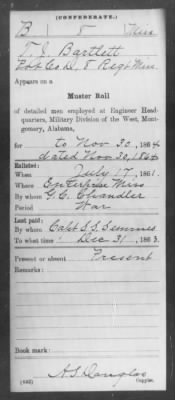 (CONFEDERATE.)
B 8 Miss
T. J. Bartlett
Co. D, 8 Reg't Miss
Appears on a
Muster Roll
of detailed men employed at Engineer Head-
quarters, Military Division of the West, Mont-
gomery, Alabama,
for to Nov 30, 1864
dated Nov 30, 1864
Enlisted:
When July 17, 1861.
Where Enterprise Miss
By whom G. C. Chandler
Period War
Last paid:
By whom Capt S. S. Semmes
To what time Dec 31, 1863.
Present or absent Present
Remarks:
Book mark:
A S Douglas
Copyist.